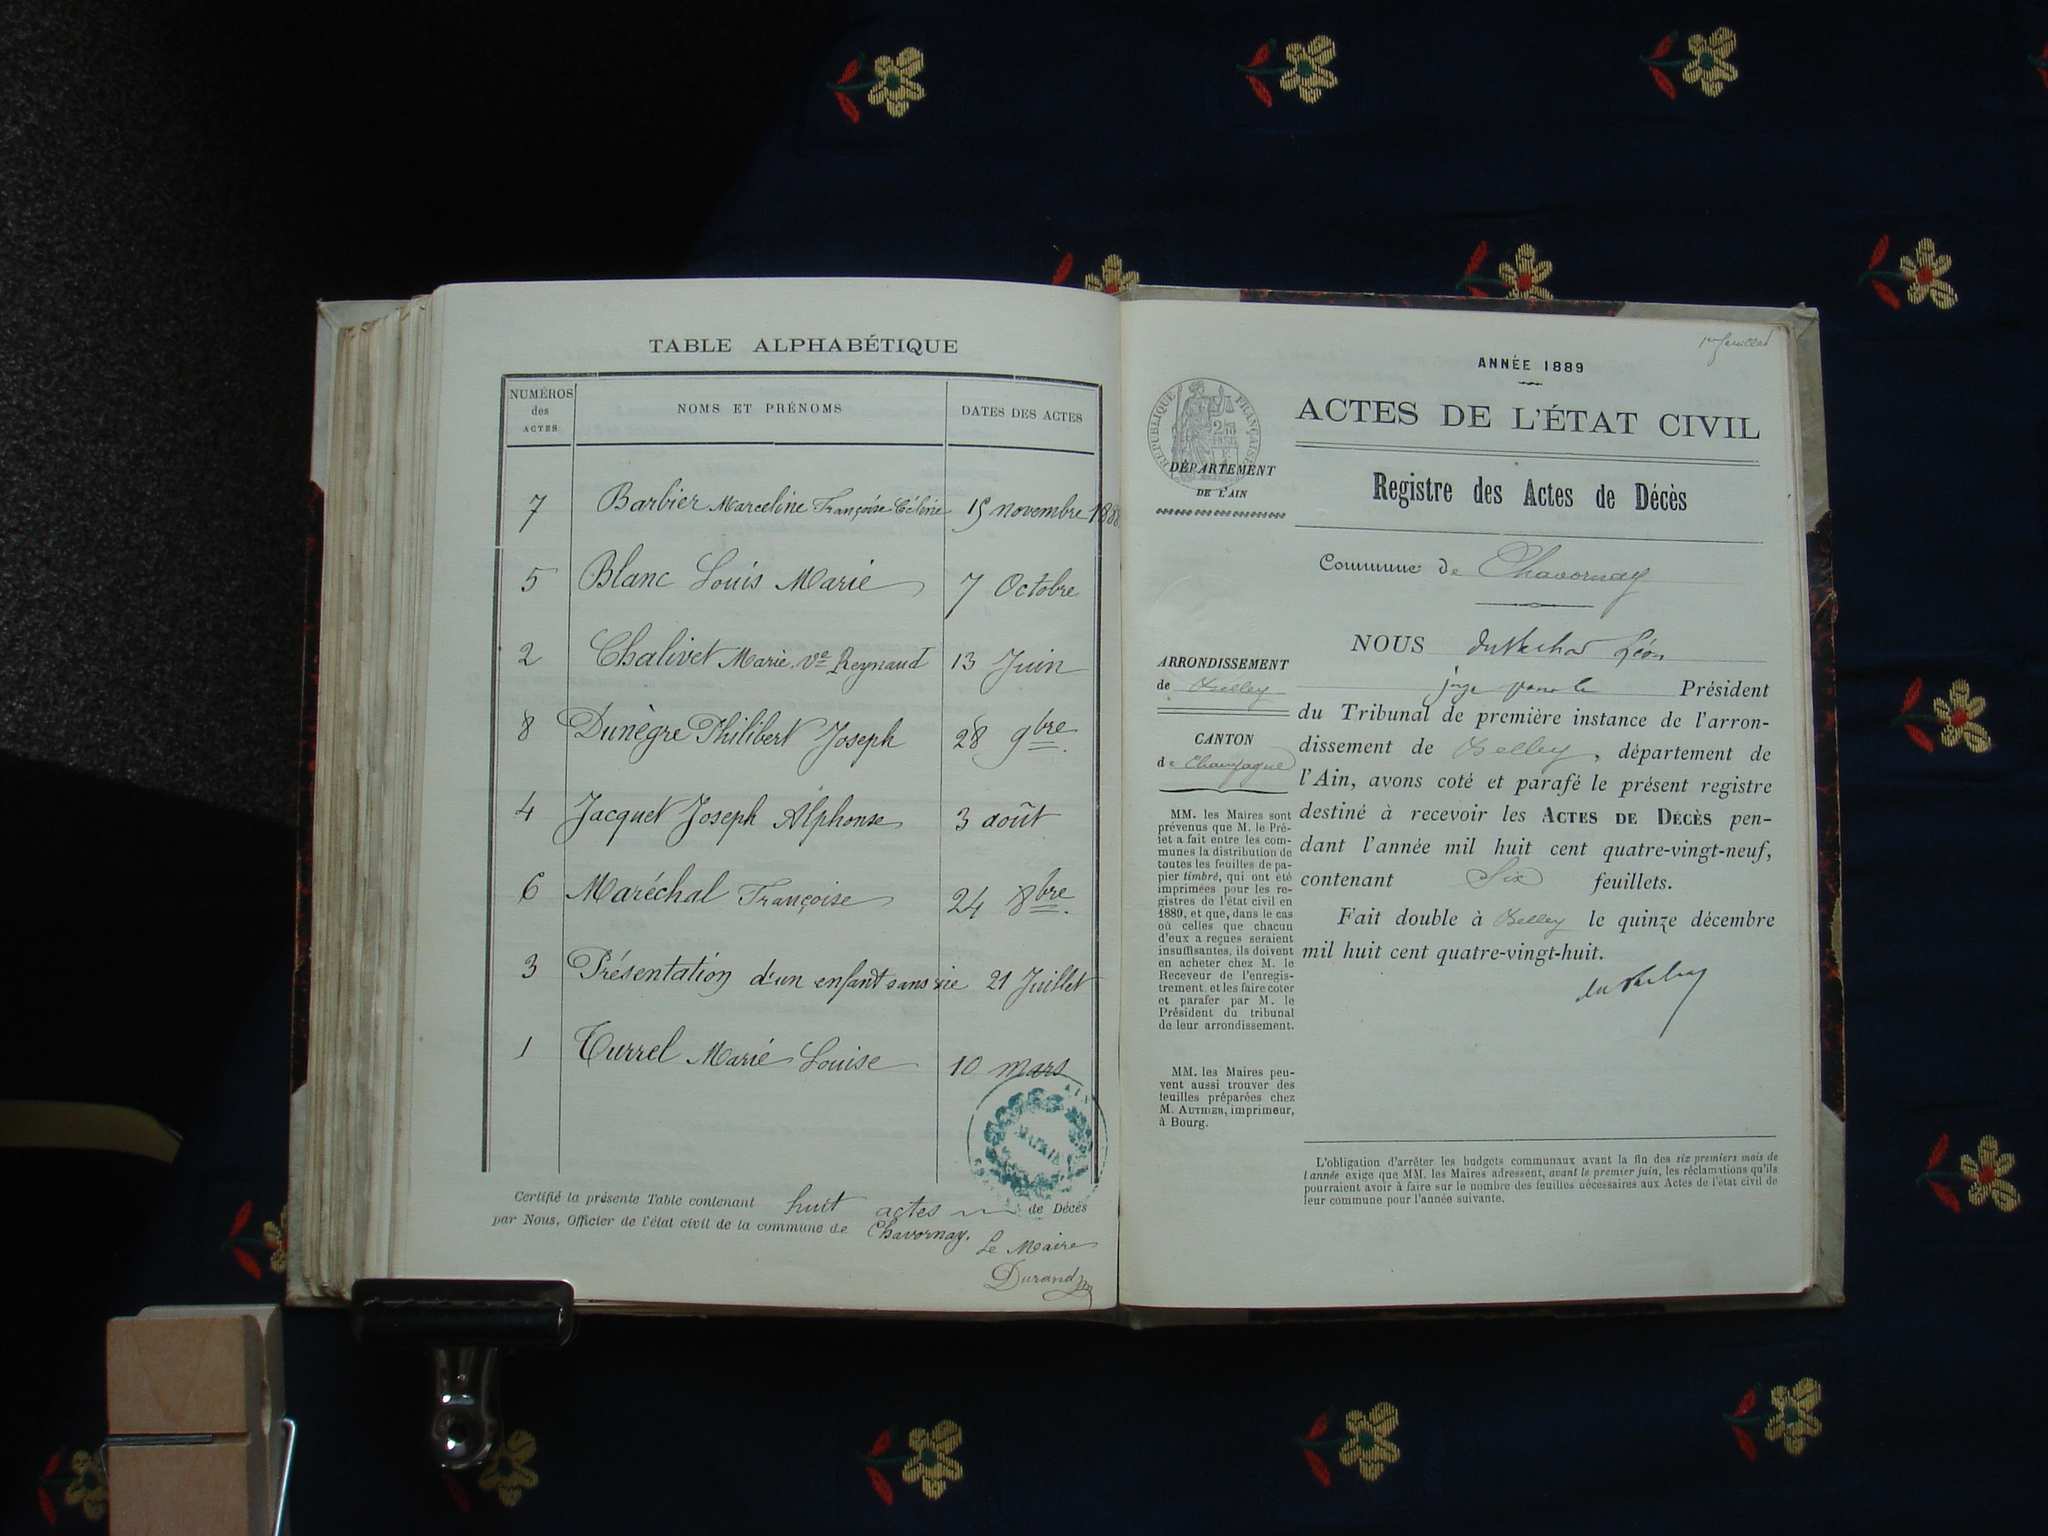 TABLE ALPHABÉTIQUE
NUMÉROS des ACTES NOMS ET PRÉNOMS DATES DES ACTES
7 Barbier Marceline Françoise Céline 15 novembre 1888
5 Blanc Louis Marie 7 Octobre
2 Chalivet Marie Ve Reynaud 13 Juin
8 Dunègre Philibert Joseph 28 9bre
4 Jacquet Joseph Alphonse 3 août
6 Maréchal Françoise 24 8bre
3 Présentation d'un enfant sans vie 21 Juillet
1 Turrel Marie Louise 10 mars
MAIRIE
AIN
Certifié la présente Table contenant huit actes de Décès
par Nous, Officier de l'état civil de la commune de Chavornay.
Le Maire
Durand
1er feuillet
ANNÉE 1889
ACTES DE L'ÉTAT CIVIL
RÉPUBLIQUE FRANÇAISE
DÉPARTEMENT
DE L'AIN
Registre des Actes de Décès
Commune de Chavornay
ARRONDISSEMENT
de Belley
CANTON
de Champagne
MM. les Maires sont
prévenus que M. le Pré-
fet a fait entre les com-
munes la distribution de
toutes les feuilles de pa-
pier timbré, qui ont été
imprimées pour les re-
gistres de l'état civil en
1889, et que, dans le cas
où celles que chacun
d'eux a reçues seraient
insuffisantes, ils doivent
en acheter chez M. le
Receveur de l'enregis-
trement, et les faire coter
et parafer par M. le
Président du tribunal
de leur arrondissement.
MM. les Maires peu-
vent aussi trouver des
feuilles préparées chez
M. AUTHIER, imprimeur,
à Bourg.
NOUS Léon
juge pour le Président
du Tribunal de première instance de l'arron-
dissement de Belley, département de
l'Ain, avons coté et parafé le présent registre
destiné à recevoir les ACTES DE DÉCÈS pen-
dant l'année mil huit cent quatre-vingt-neuf,
contenant Six feuillets.
Fait double à Belley le quinze décembre
mil huit cent quatre-vingt-huit.
L'obligation d'arrêter les budgets communaux avant la fin des six premiers mois de
l'année exige que MM. les Maires adressent, avant le premier juin, les réclamations qu'ils
pourraient avoir à faire sur le nombre des feuilles nécessaires aux Actes de l'état civil de
leur commune pour l'année suivante.